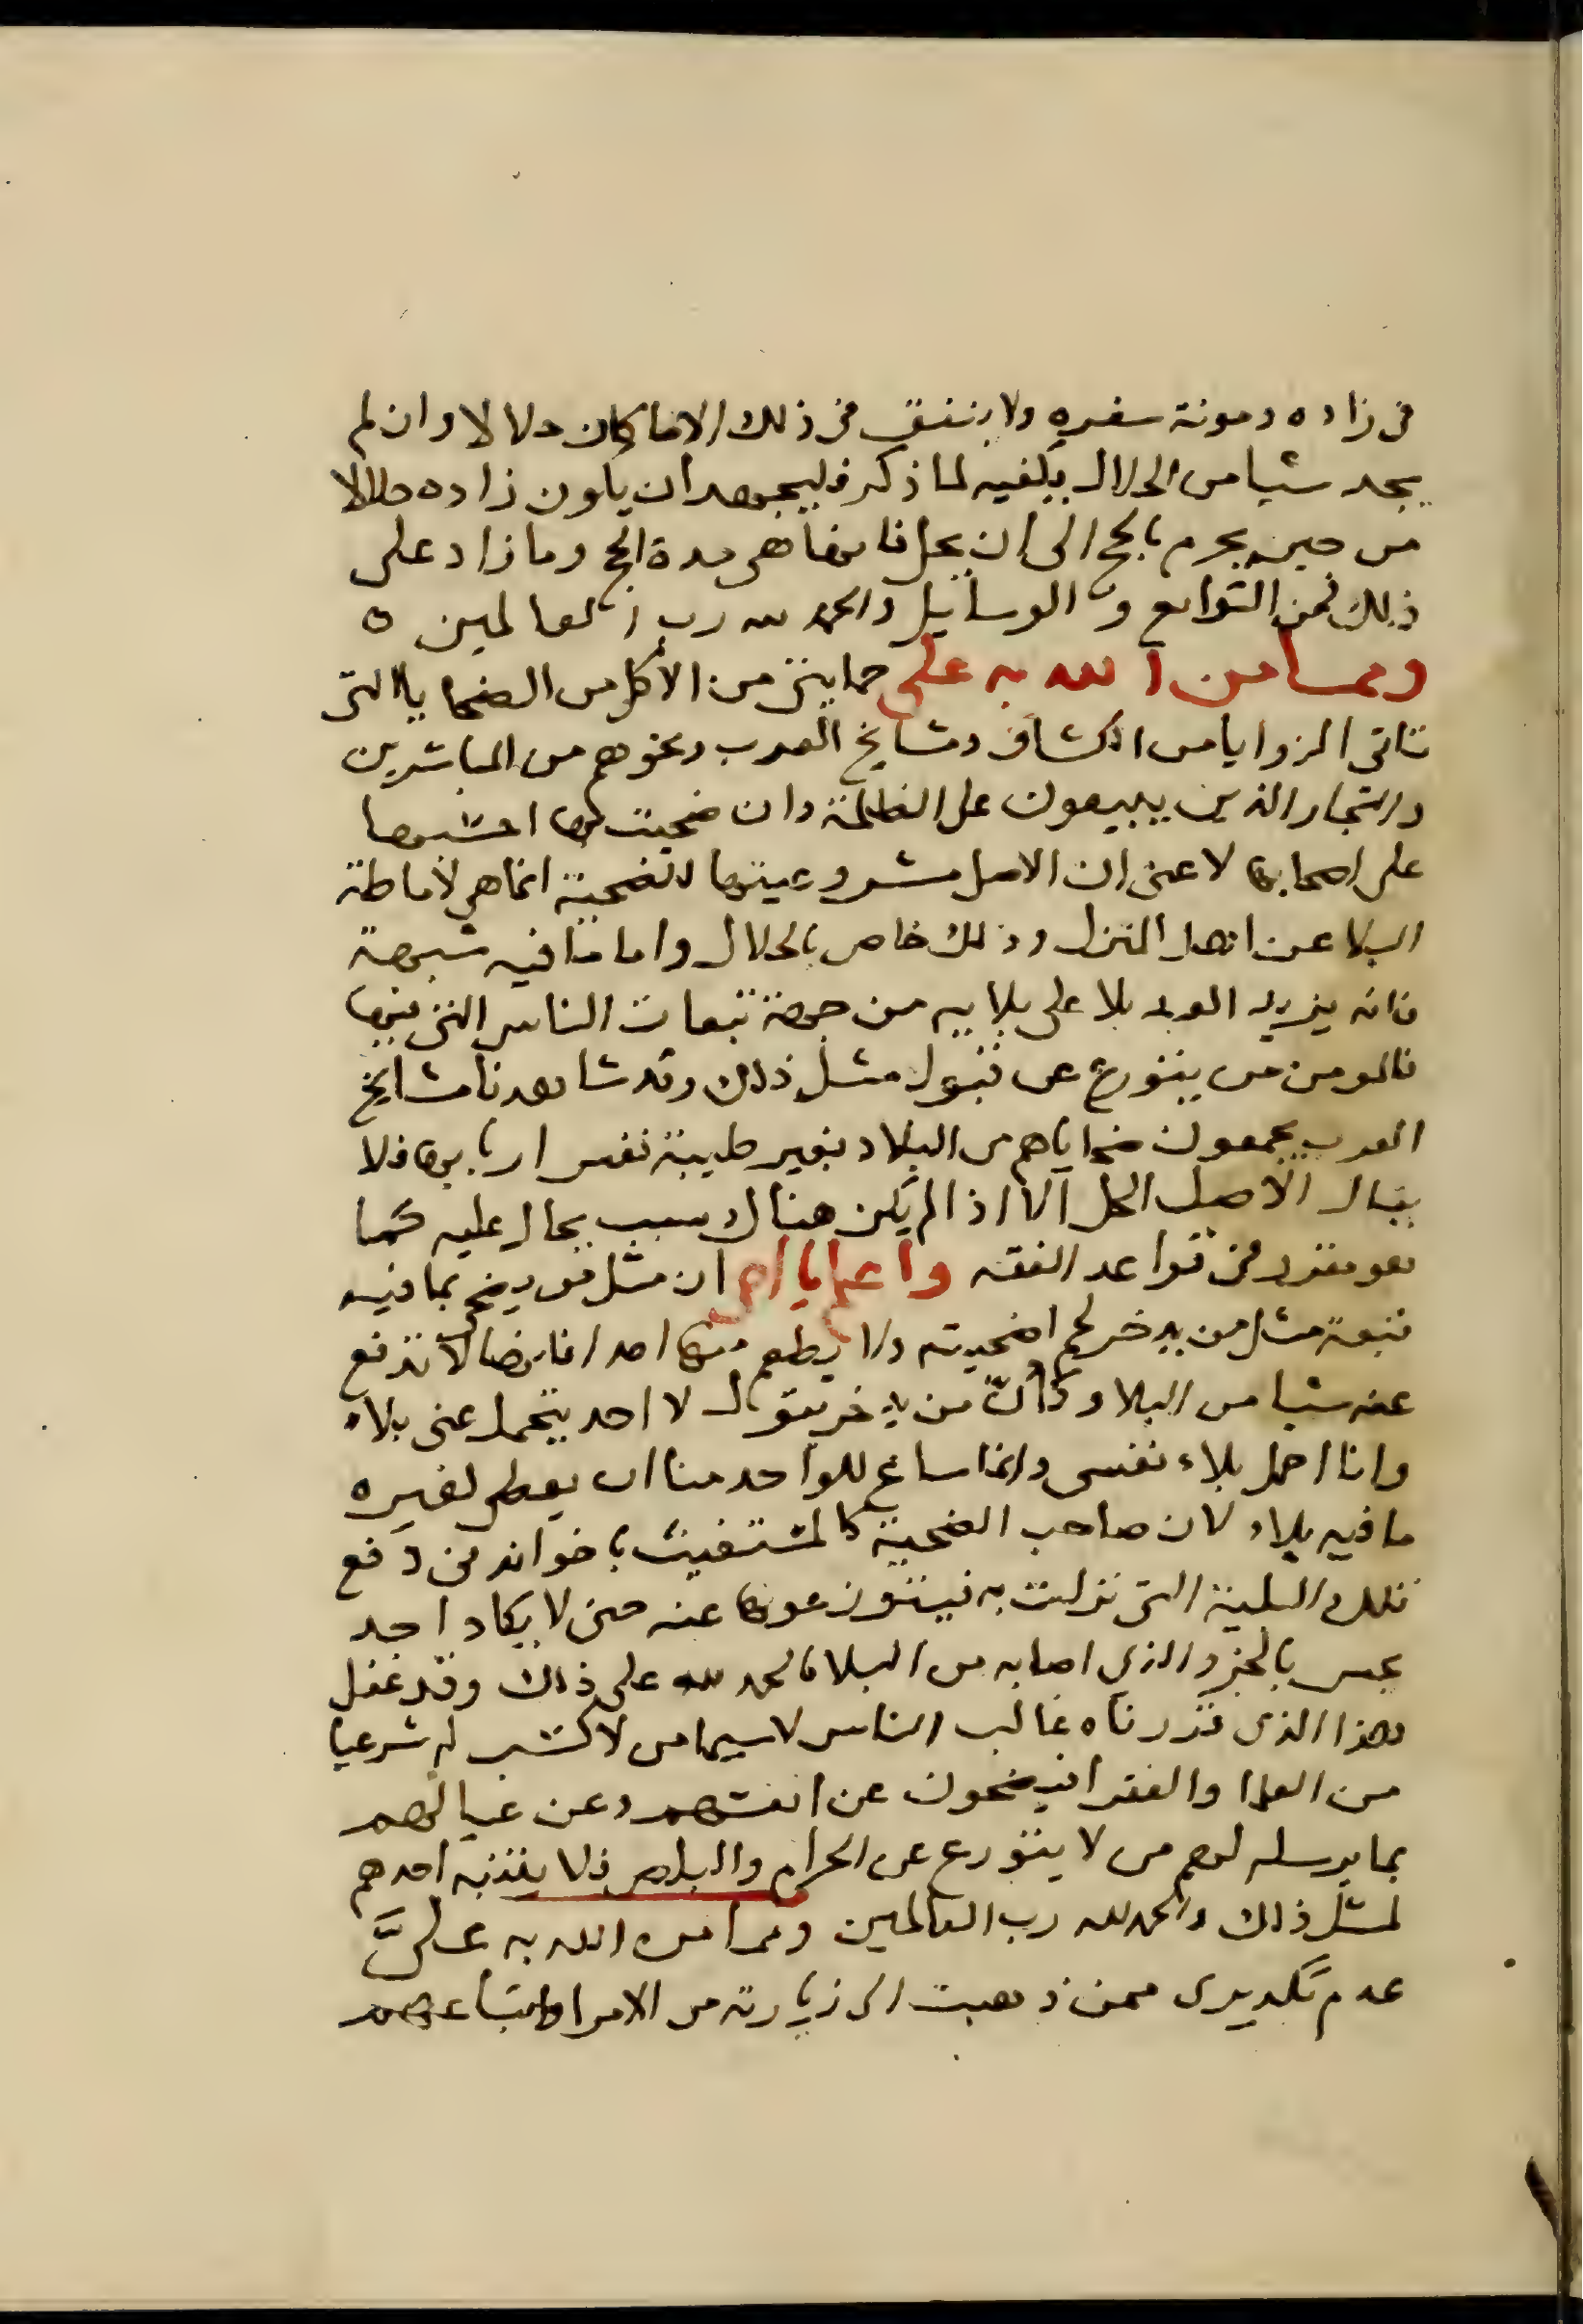 في زاده ومونة سفره ولا ينفق في ذلك الا ما كان حلالا وان لم
يجد شيا من الحلال يكفيه لما ذكر فليجهد ان يكون زاده حلالا
من حين يحرم بالحج الى ان يحل فانها هي مدة الحج وما زاد على
ذلك فمن التوابع والوسايل والحمد لله رب العالمين ه
ومما من الله به على حمايتي من الاكل من الضحايا التي
تاتي الزوايا من الكشاف ومشايخ العرب ونحوهم من المباشرين
والتجار الذين يبيعون على الظلمة وان ضحيت بها احتسبها
على اصحابها لا عني ان الاصل مشروعيتها لتضحية انما هي لاماطة
البلا عن اهل المنزل وذلك خاص بالحلال واما ما فيه شبهة
فانه يزيد العبد بلا على بلايه من جهة تبعات الناس التي فيها
فالمومن من يتورع عن قبول مثل ذلك وقد شاهدنا مشايخ
العرب يجمعون ضحاياهم من البلاد بغير طيبة نفس اربابها فلا
يقال الاصل الحل الا اذا لم يكن هناك سبب يحال عليه كما
هو مقرر في قواعد الفقه واعلم يا اخي ان مثل من يضحي بما فيه
تبعة مثل من يدخر لحم اضحيته ولا يطعم منها احدا فانها لا تدفع
عنه شيا من البلا وكان من يدخر يقول لا احد يتحمل عني بلاء
وانا احمل بلاء نفسي وانما ساغ للواحد منا ان يعطي لغيره
ما فيه بلاء لان صاحب الضحية كالمستغيث باخوانه في دفع
تلك البلية التي نزلت به فيتوزعونها عنه حتى لا يكاد احد
يحس بالجزء الذي اصابه من البلا فالحمد لله على ذلك وقد غفل
هذا الذي قررناه غالب الناس لاسيما من لا كسب له شرعيا
من العلما والفقرا فيضحون عن انفسهم وعن عيالهم
بما يرسله لهم من لا يتورع عن الحرام والبلص فلا يتنبه احدهم
لمثل ذلك والحمد لله رب العالمين ومما من الله به علىَّ
عدم تكديري ممن ذهبت الى زيارته من الامرا واتباعهم